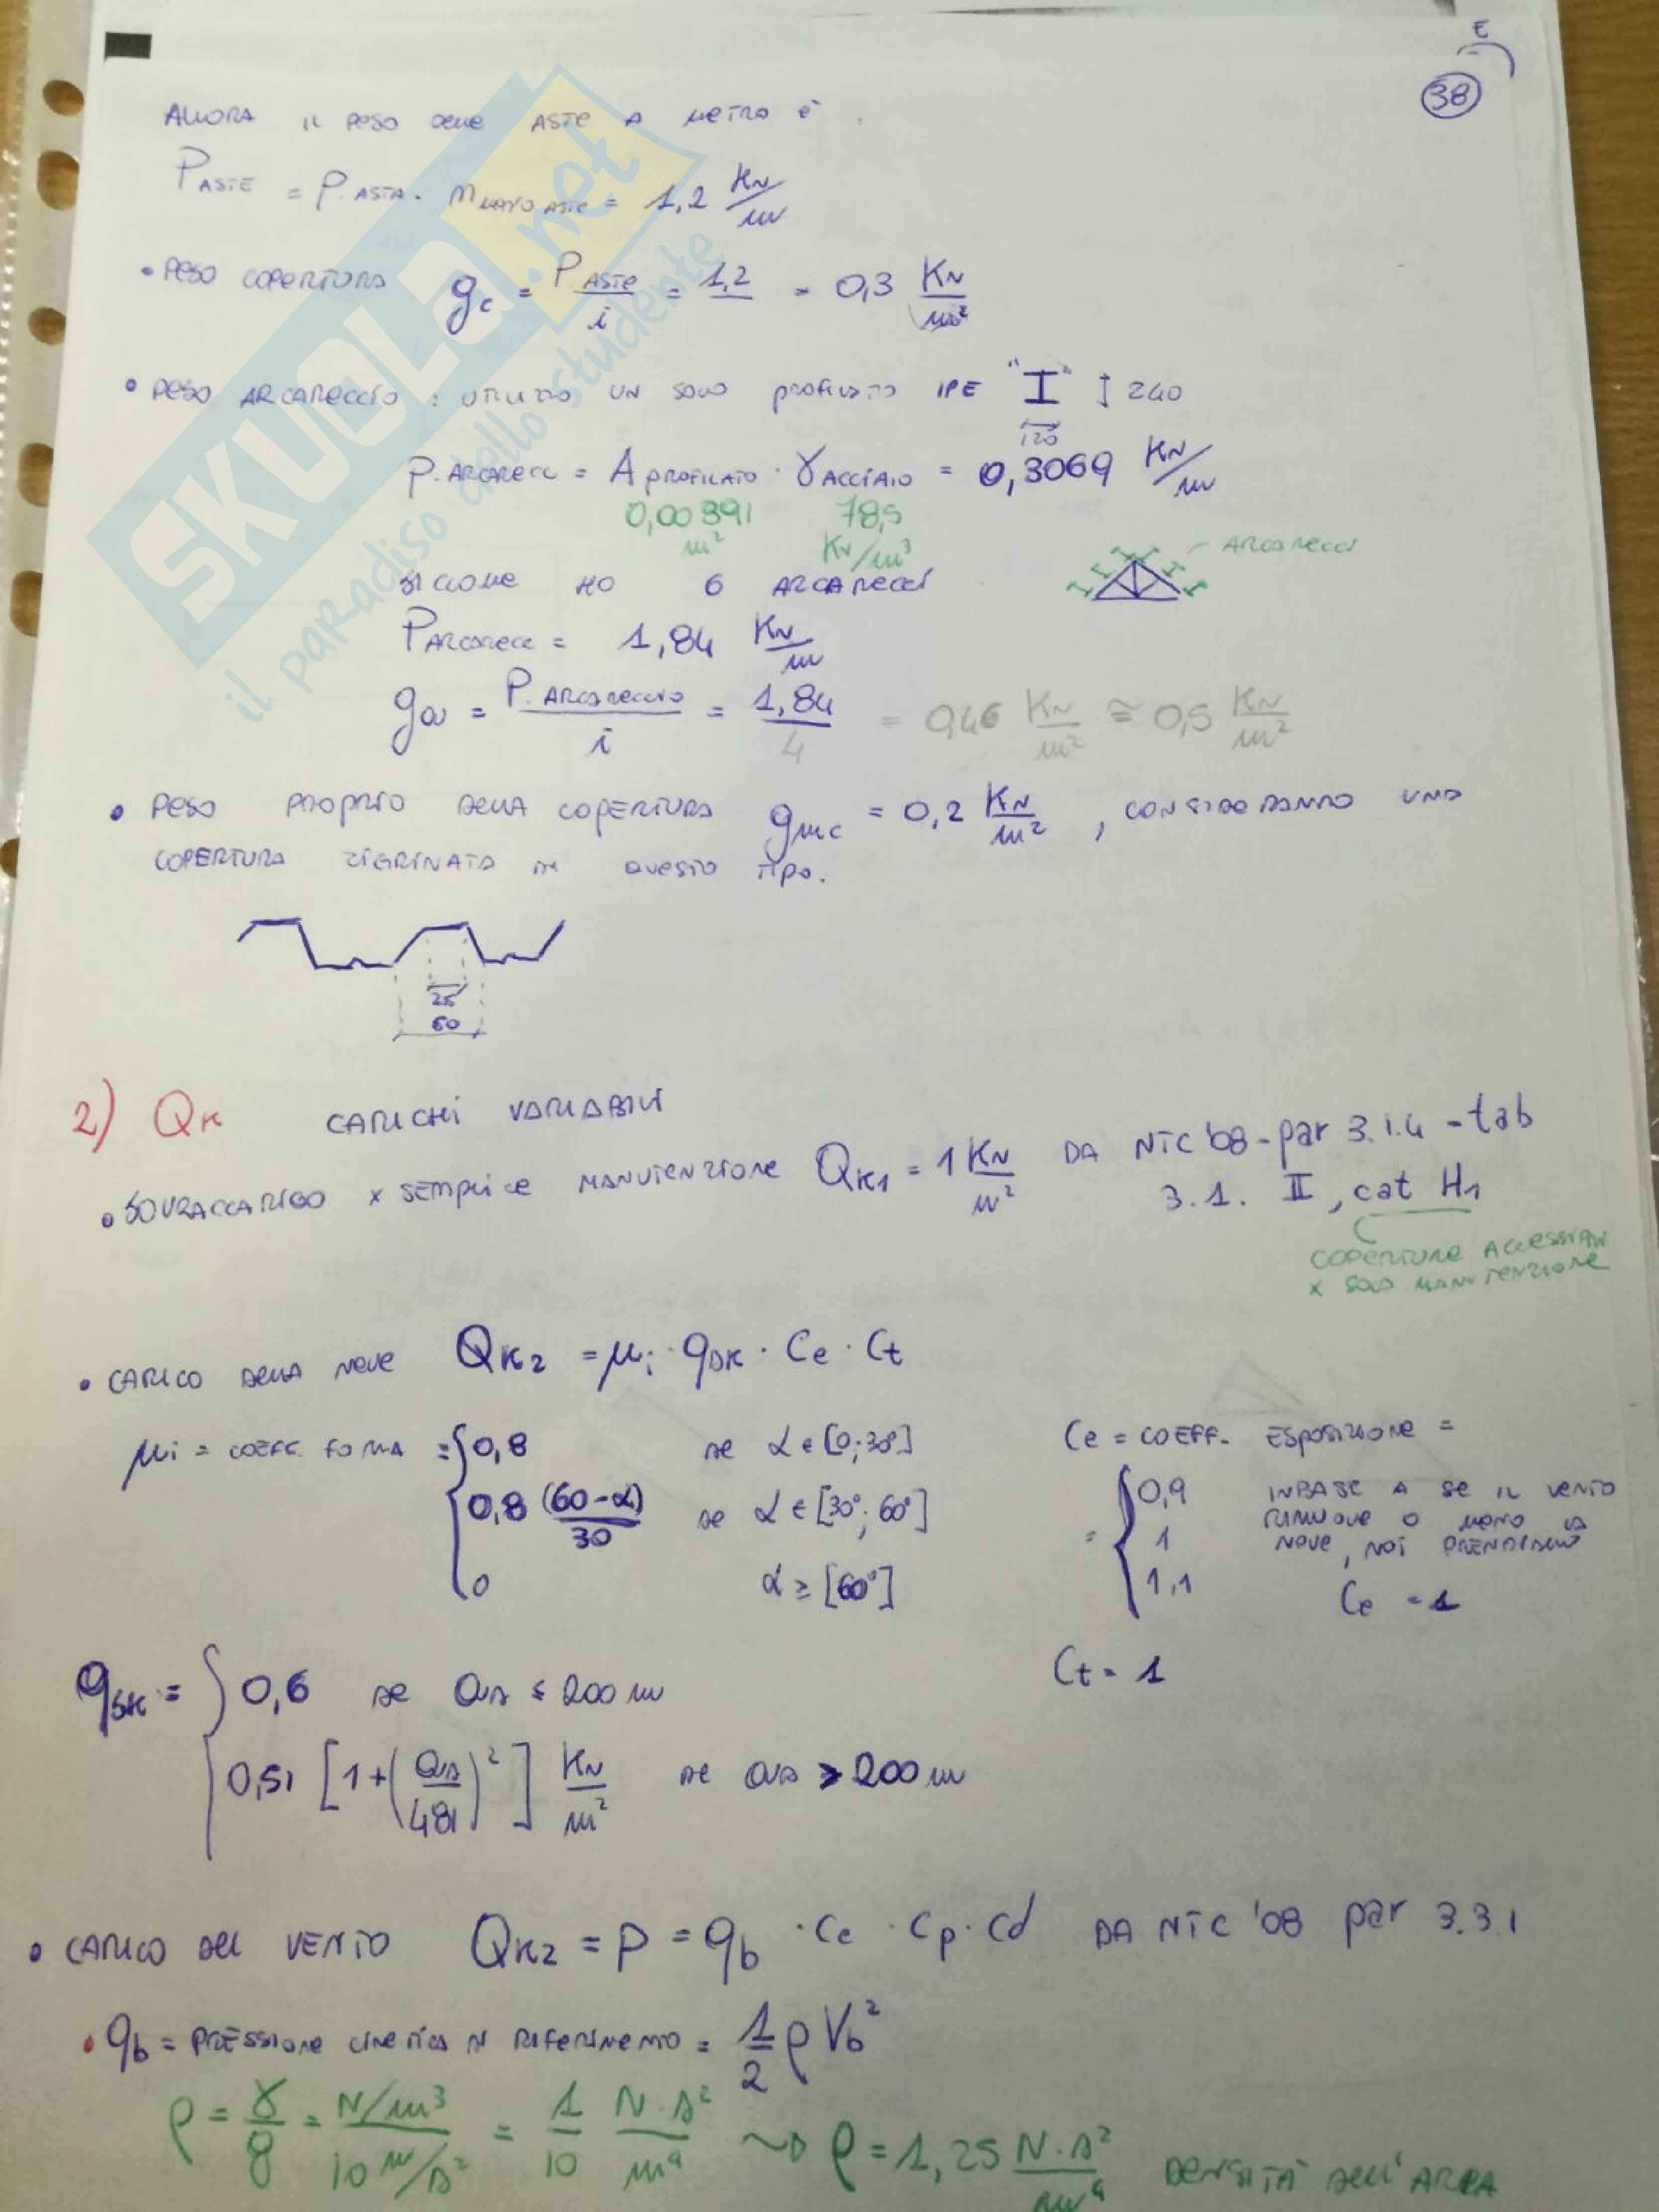 E
38
ALLORA IL PESO DELLE ASTE A METRO È
P ASTE = P. ASTA · m = 1,2 KN/m
• PESO COPERTURA gc = P ASTE / i = 1,2 / = 0,3 KN/m²
• PESO ARCARECCIO : UTILIZZO UN SOLO PROFILATO IPE "I" ] 240
120
P. ARCARECC = A PROFILATO · γ ACCIAIO = 0,3069 KN/m
0,00391 m² 78,5 KN/m³
ARCARECCI
SICCOME HO 6 ARCARECCI
P ARCARECC = 1,84 KN/m
ga = P. ARCARECCIO / i = 1,84 / 4 = 0,46 KN/m² ≅ 0,5 KN/m²
• PESO PROPRIO DELLA COPERTURA gmc = 0,2 KN/m² , CONSIDERANDO UNA
COPERTURA ZIGRINATA DI QUESTO TIPO.
25
60
2) QK CARICHI VARIABILI
• SOVRACCARICO x SEMPLICE MANUTENZIONE QK1 = 1 KN/m² DA NTC '08 - par 3.1.4 - tab
3.1. II , cat H1
COPERTURE ACCESSIBILI
x SOLA MANUTENZIONE
• CARICO DELLA NEVE QK2 = μi · qsk · Ce · Ct
μi = COEFF. FORMA = { 0,8 se α ∈ [0; 30°]
0,8 (60-α)/30 se α ∈ [30°; 60°]
0 α ≥ [60°]
Ce = COEFF. ESPOSIZIONE =
= { 0,9 1 1,1
IN BASE A SE IL VENTO
RIMUOVE O MENO LA
NEVE, NOI PRENDIAMO
Ce = 1
Ct = 1
qsk = { 0,6 se as ≤ 200 m
0,51 [1+(as/481)²] KN/m² se as > 200 m
• CARICO DEL VENTO QK2 = P = qb · Ce · Cp · Cd DA NTC '08 par 3.3.1
• qb = PRESSIONE CINETICA DI RIFERIMENTO = 1/2 ρ Vb²
ρ = γ/g = N/m³ / 10 m/s² = 1/10 N·s²/m⁴ ~> ρ = 1,25 N·s²/m⁴ DENSITÀ DELL'ARIA
SKUOLA.net
il paradiso dello studente